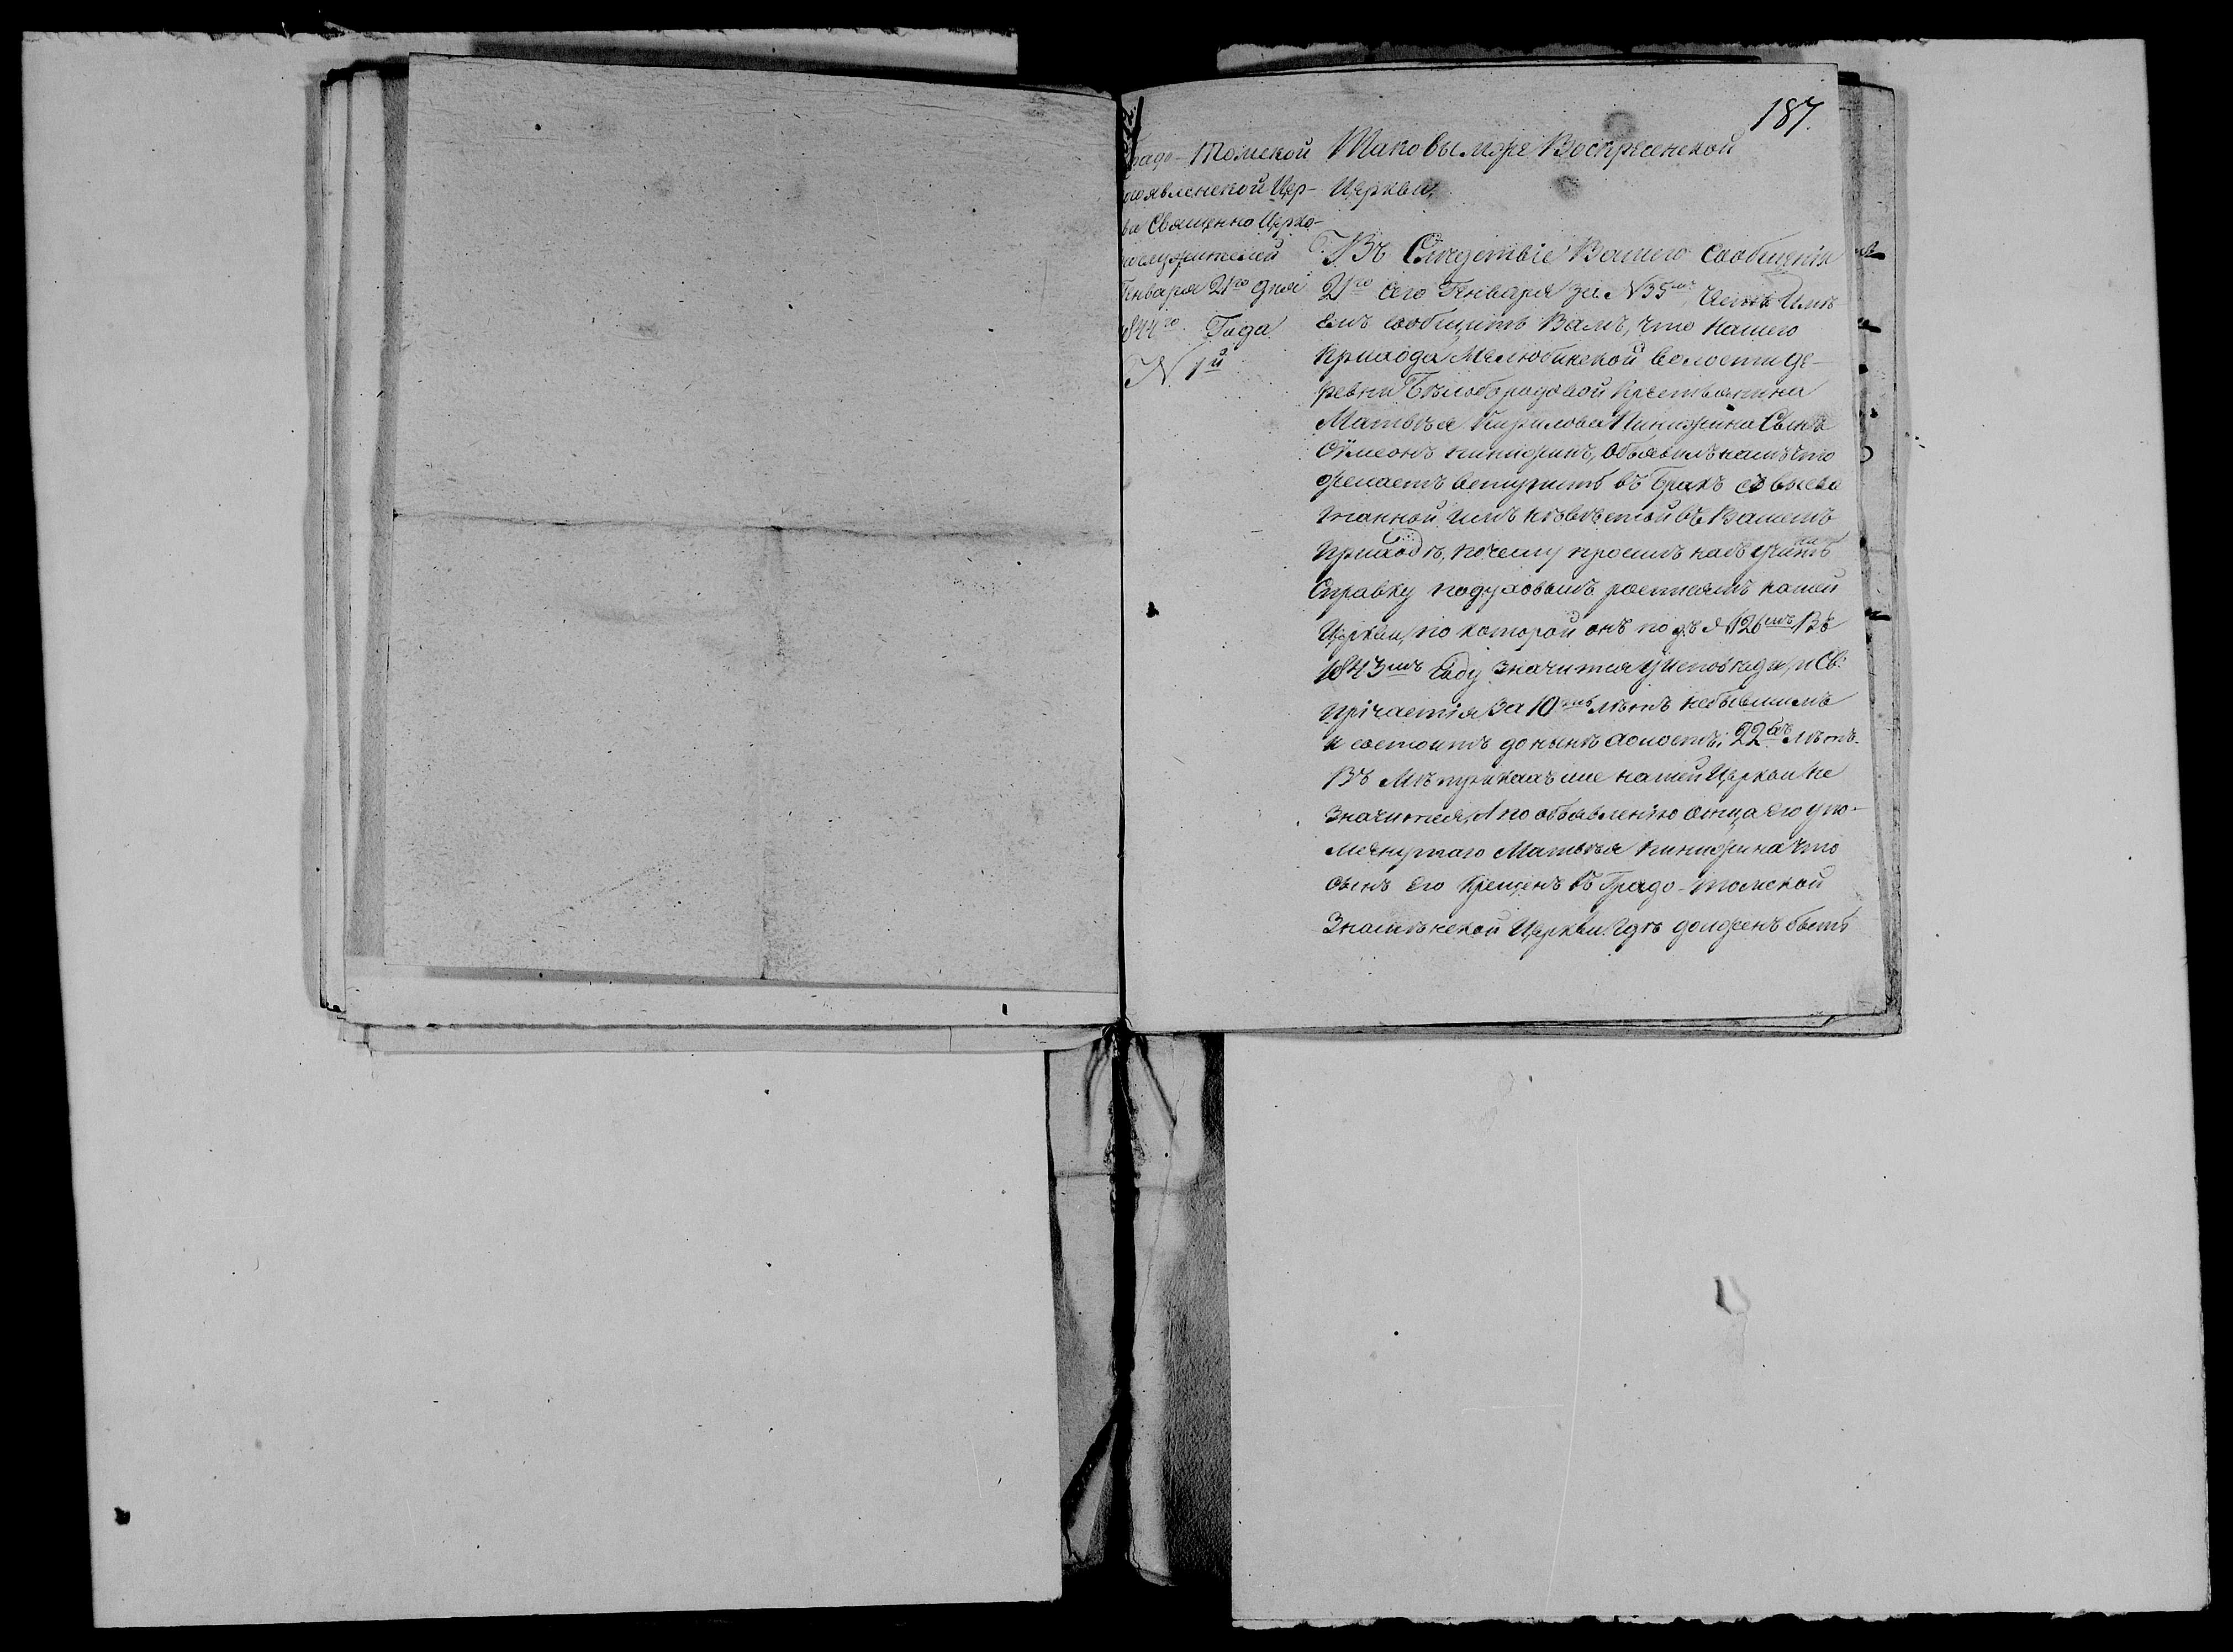 187.
Градо-Томской
Богоявленской Цер-
кви Священно Церко-
вно служителей
Генваря 21го дня
1844го Года
N. 1й
Таковымже Воскресенской
Церкви.
Въ Следствіе Вашего сообщенія
21го сего Генваря за N 35мъ, честь имѣ
емъ сообщить Вамъ, что нашего
прихода Мелюбинской волости де-
ревни Бѣлобородовой Крестьянина
Матвѣя Кирилова Пинижина Сынъ
Сѵмеонъ пинижинъ, объявилъ намъ что
желаетъ вступить въ Бракъ съ выска
тканной имъ невѣстой въ Вашемъ
приходѣ, почему просилъ насъ учинить
Справку подуховымъ росписямъ нашей
Церкви, по которой онъ подъ N 126мъ Въ
1843мъ Году значится уисповѣди, и Св:
причастія За 10ть лѣтъ небывшимъ
и состоитъ донынѣ холостъ; 22хъ лѣтъ.
Въ Мѣтрикахъ же нашей Церкви не
значится, А по объявленію отца его упо-
мянутаго Матвѣя пинижина что
сынъ его крещенъ въ Градо-томской
Знамѣнской Церкви. Гдѣ долженъ быть